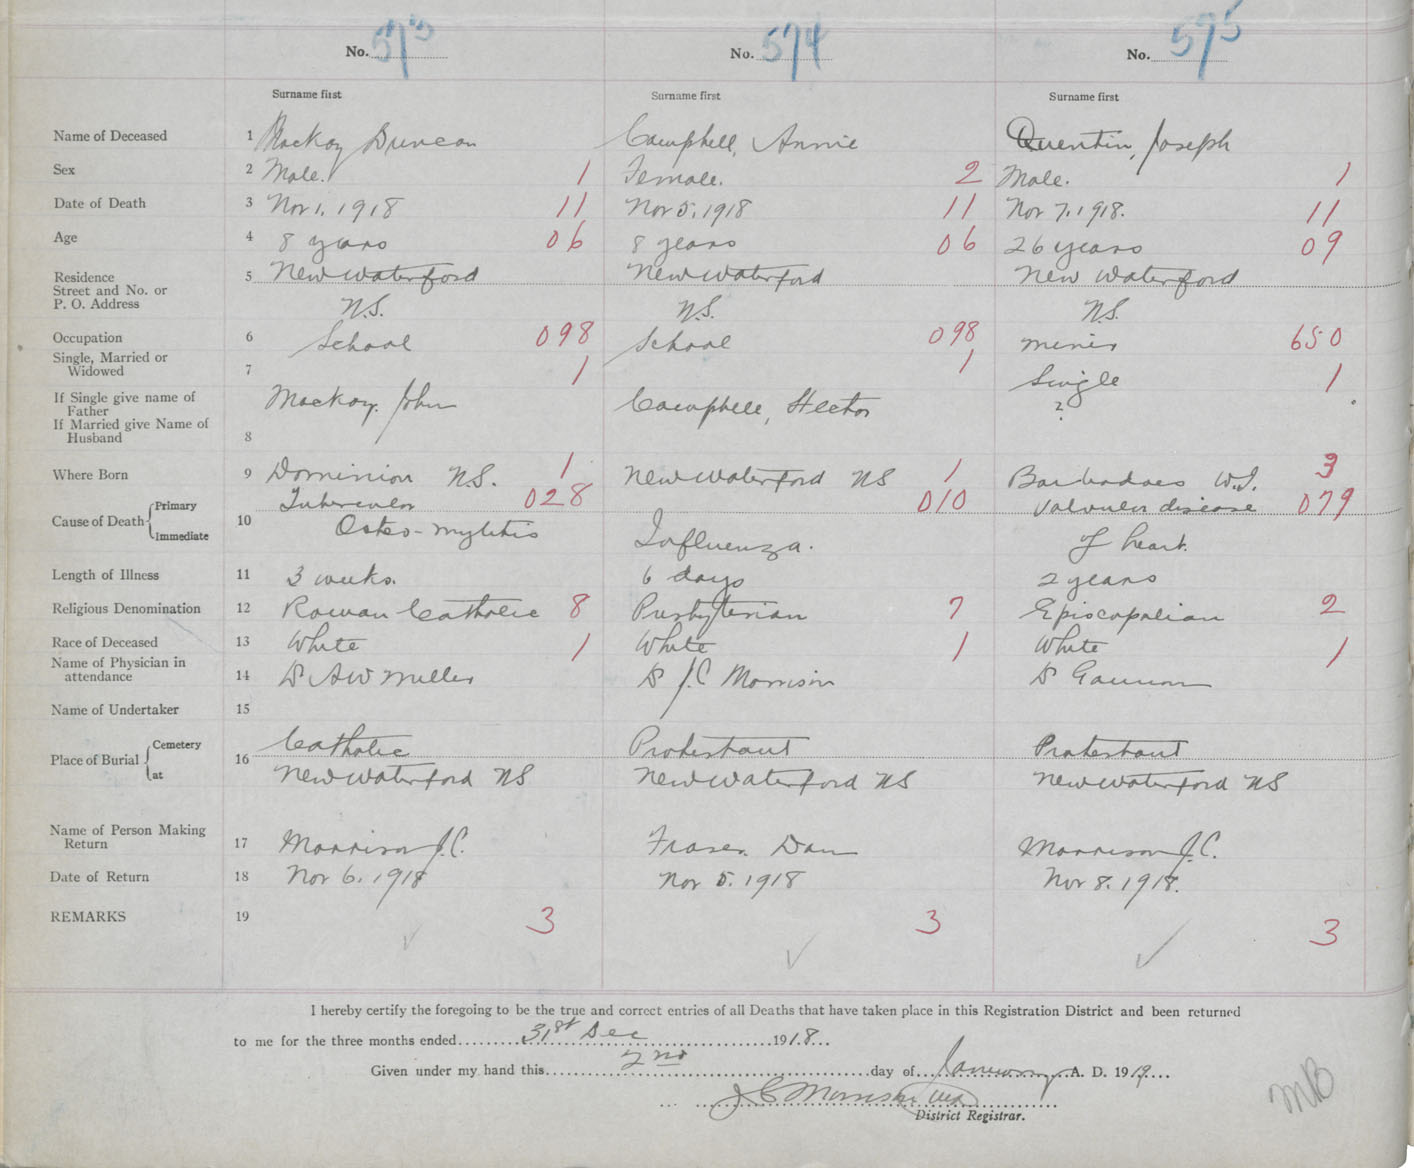 No. 573 No. 574 No. 575
Surname first Surname first Surname first
Name of Deceased 1 Mackay Duncan Campbell, Annie Quentin, Joseph
Sex 2 Male. 1 Female. 2 Male. 1
Date of Death 3 Nov 1. 1918 11 Nov 5. 1918 11 Nov 7. 1918. 11
Age 4 8 years 06 8 years 06 26 years 09
Residence
Street and No. or 5 New Waterford New Waterford New Waterford
P. O. Address N.S. N.S. N.S.
Occupation 6 School 098 School 098 miner 650
Single, Married or
Widowed 7 1 1 Single 1
If Single give name of Mackay. John Campbell, Hector ?
Father
If Married give Name of
Husband 8
Where Born 9 Dominion N.S. 1 New Waterford NS 1 Barbadoes W.I. 3
Primary Tubercular 028 010 Valvular disease 079
Cause of Death 10 Osteo-mylitis Influenza. of heart.
Immediate
Length of Illness 11 3 weeks. 6 days 2 years
Religious Denomination 12 Roman Catholic 8 Presbyterian 7 Episcopalian 2
Race of Deceased 13 White 1 White 1 White 1
Name of Physician in
attendance 14 Dr A W Miller Dr J.C Morrison Dr
Name of Undertaker 15
Cemetery Catholic Protestant Protestant
Place of Burial 16
at New Waterford NS New Waterford NS New Waterford NS
Name of Person Making
Return 17 Morrison J.C. Fraser. Dan Morrison J.C.
Date of Return 18 Nov 6. 1918 Nov 5. 1918 Nov 8. 1918.
REMARKS 19 3 3 3
I hereby certify the foregoing to be the true and correct entries of all Deaths that have taken place in this Registration District and been returned
to me for the three months ended 31st Dec 1918
Given under my hand this 2nd day of January A. D. 1919
J C Morrison MD
District Registrar.
MB